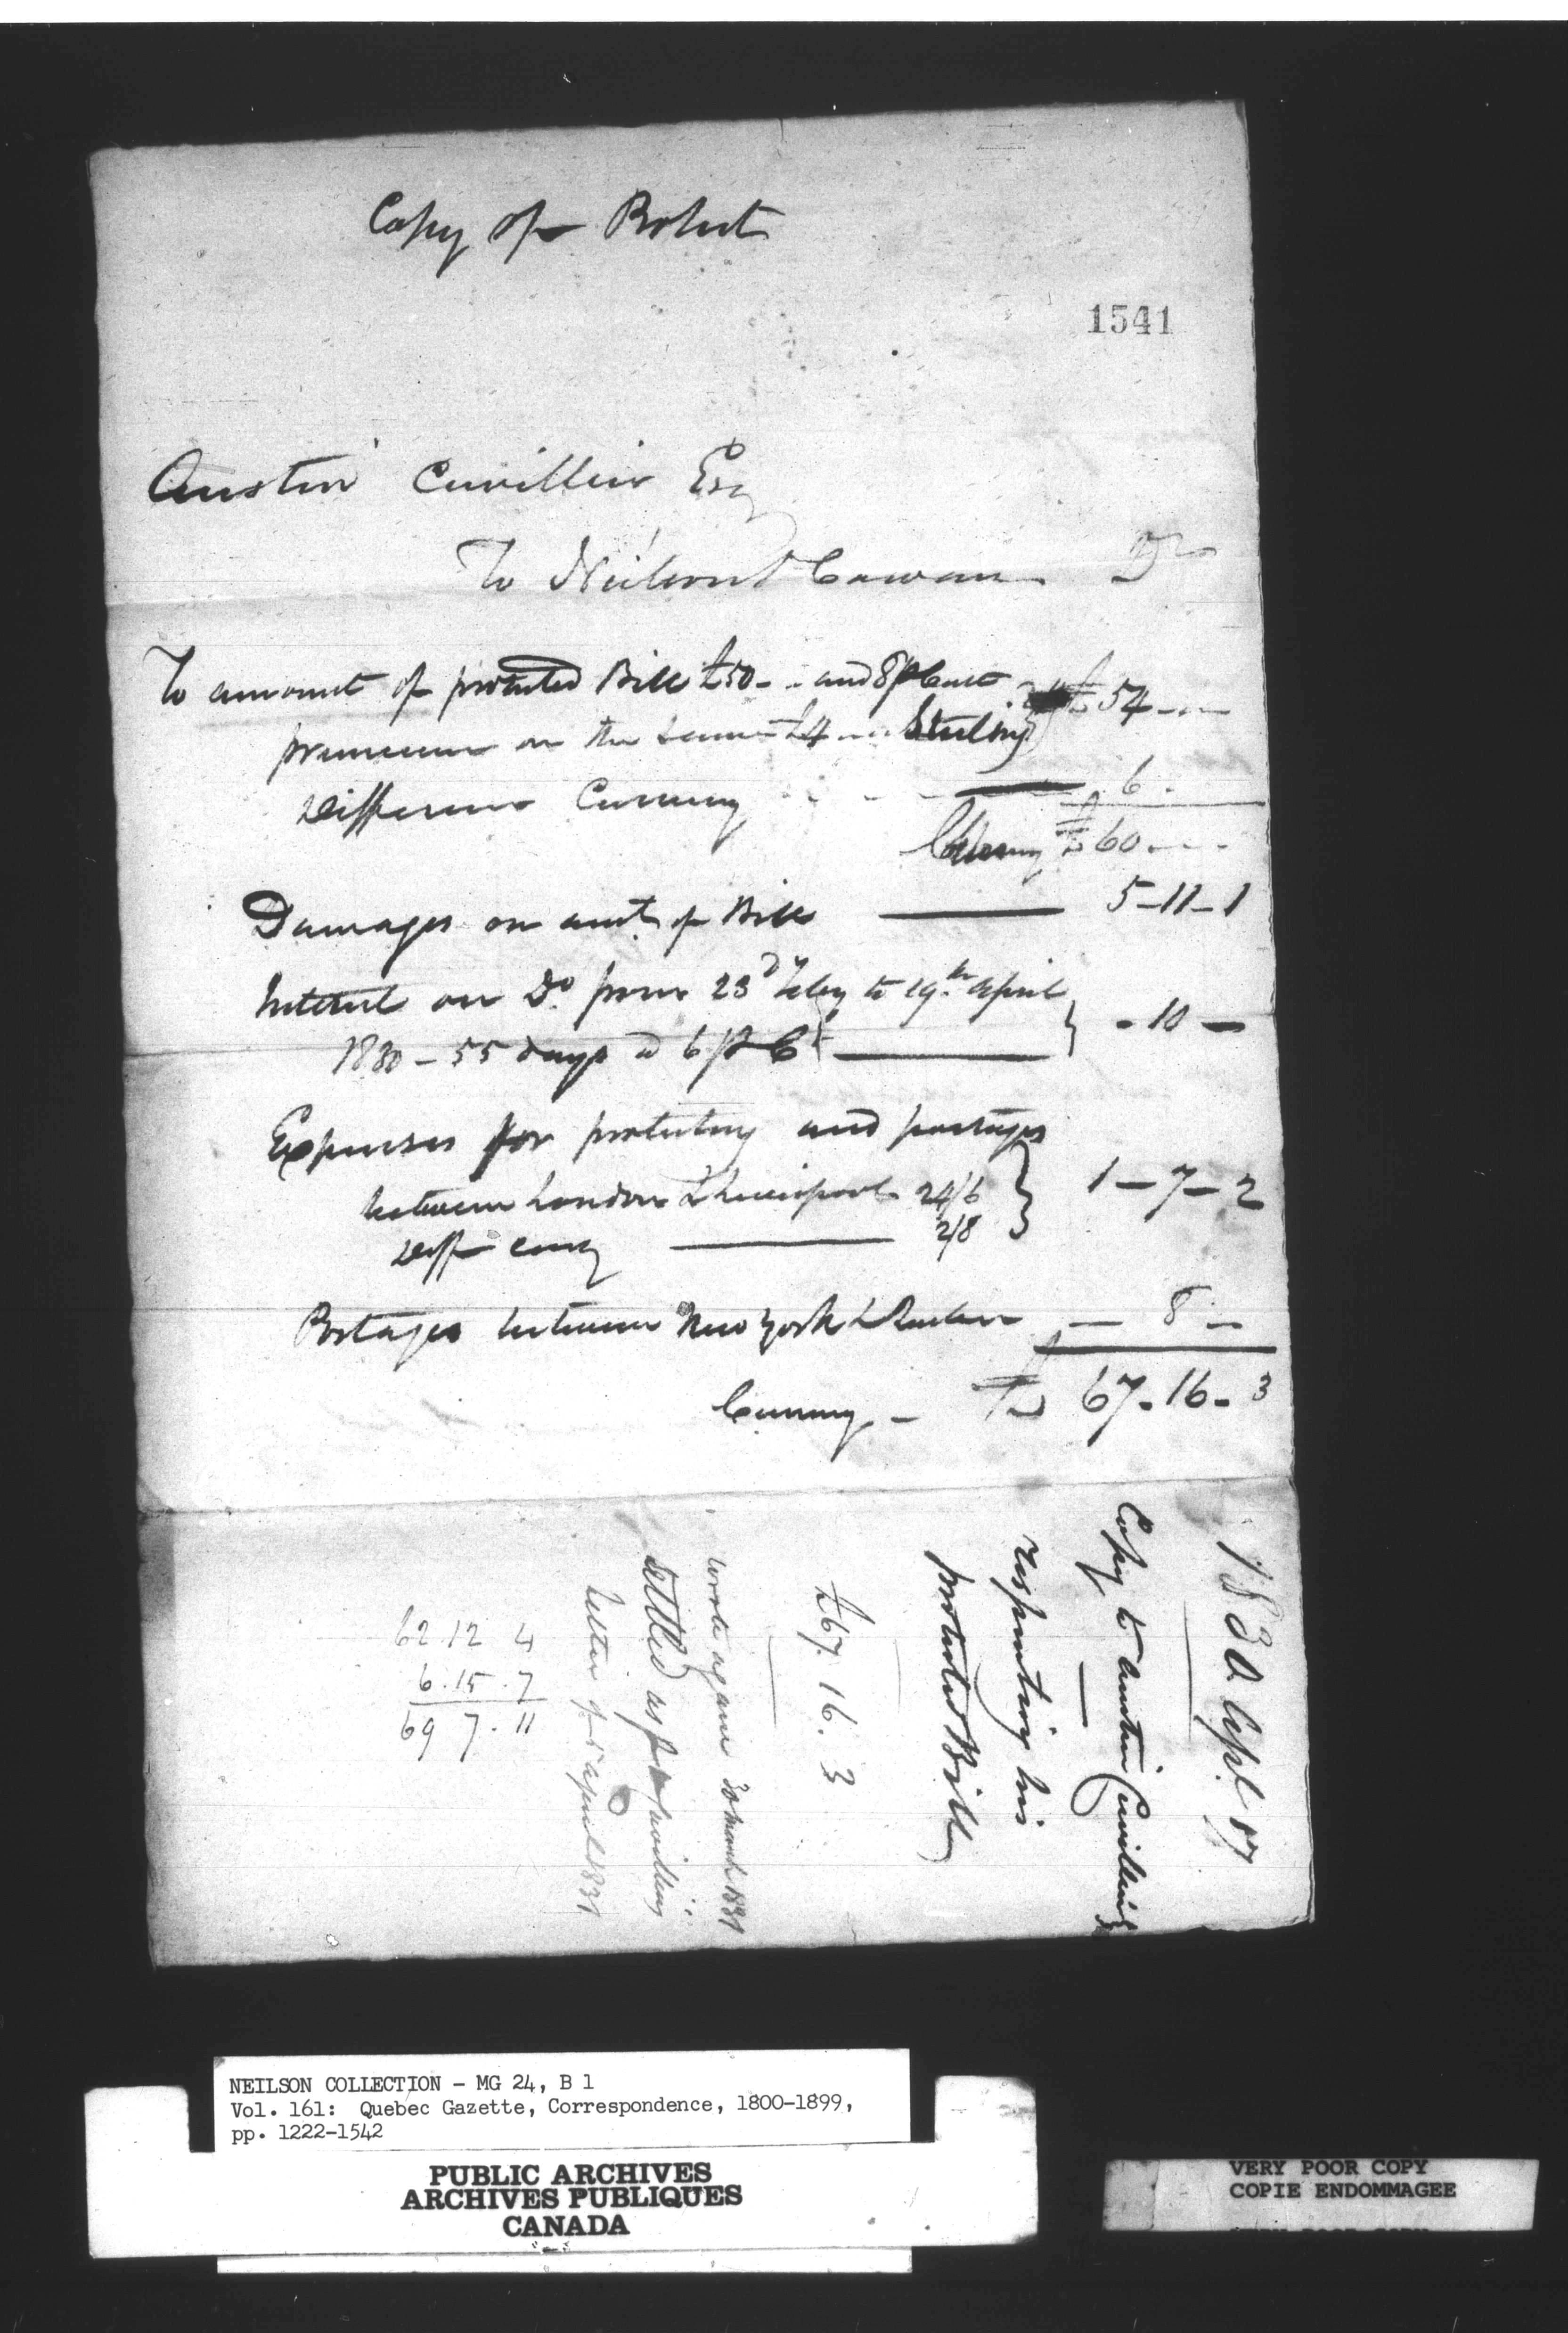 Copy of Protest
1541
Austin Cuvillier Esq
To Neilson & Cowan Dr
To amount of protested Bill £50 - .. and 8 p Cent
premium on the same £4 .. .. Sterling } £ 54 - .. -
Difference Currency - - - 6 .
Currency £ 60 - .. -
Damages on amt of Bill 5 - 11 - 1
Interest on Do from 23d Feby to 19th April
1830 - 55 days @ 6 p Ct } - 10 -
Expenses for protesting and postages
between London & Liverpool 24/6
Diff curcy 2/8 } 1 - 7 - 2
Postages between New York & Quebec - 8 -
Currency - £ 67 - 16 - 3
1830 Apl 17
Copy to Austin Cuvillier
respecting his
protested Bill
£67. 16. 3
wrote again 30 March 1831
settled as p Cuvillier's
letter of 5 April 1831
62 . 12 4
6 . 15 . 7
69 7 . 11
NEILSON COLLECTION - MG 24, B 1
Vol. 161: Quebec Gazette, Correspondence, 1800-1899,
pp. 1222-1542
PUBLIC ARCHIVES
ARCHIVES PUBLIQUES
CANADA
VERY POOR COPY
COPIE ENDOMMAGEE